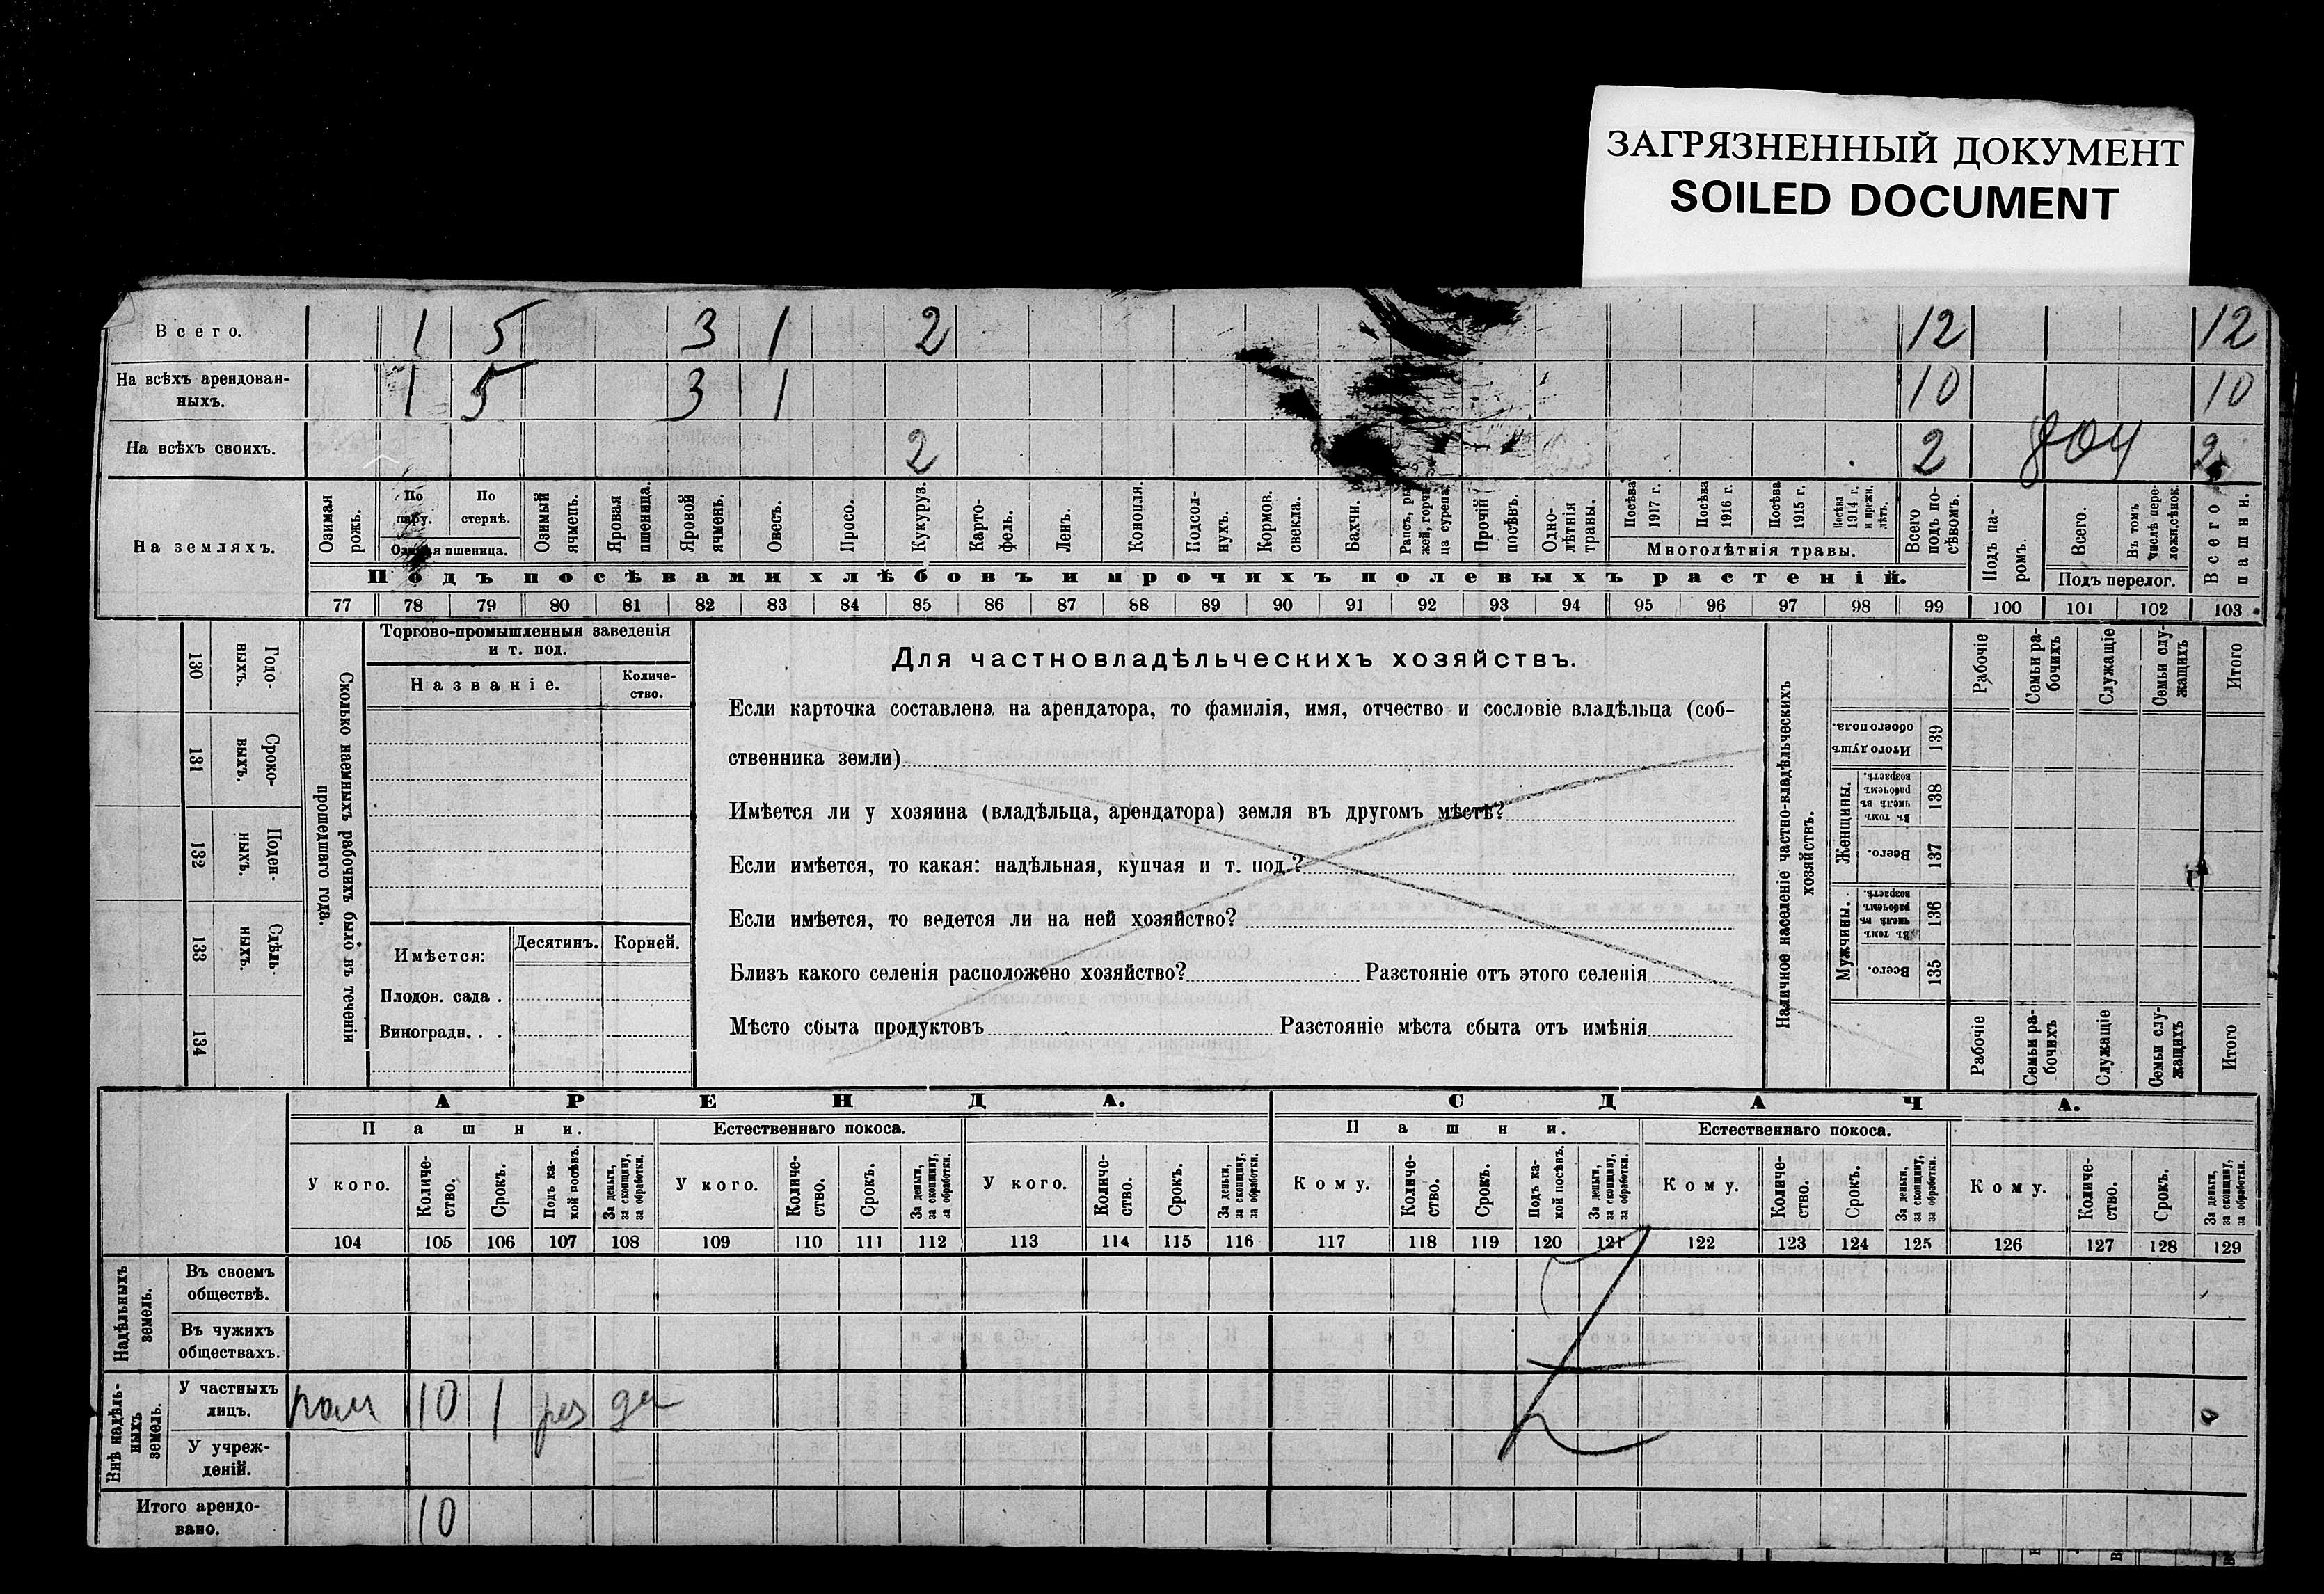 ЗАГРЯЗНЕННЫЙ ДОКУМЕНТ
SOILED DOCUMENT
Всего. 1 5 3 1 2 12 12
На всѣхъ арендован-
ныхъ. 1 5 3 1 10 10
На всѣхъ своихъ. 2 2 804 2
На земляхъ.
Озимая рожь.
По пару.
По стернѣ.
Озимая пшеница.
Озимый ячмень.
Яровая пшеница.
Яровой ячмень.
Овесъ.
Просо.
Кукуруз.
Карто-
фель.
Ленъ.
Конопля.
Подсол-
нухъ.
Кормов.
свекла.
Бахчи.
Рапсъ, ры
жей, горчи
ца сурепа
Прочій
посѣвъ.
Одно-
лѣтнія
травы.
Посѣва
1917 г.
Посѣва
1916 г.
Посѣва
1915 г.
Посѣва
1914 г.
и прежн.
лѣтъ.
Многолѣтнія травы.
Всего
подъ по-
сѣвомъ.
Подъ па-
ромъ.
Всего.
Въ томъ
числѣ пере-
ложн.сѣнок.
Подъ перелог.
Всего
пашни.
Подъ посѣвами хлѣбовъ и прочихъ полевыхъ растеній.
77 78 79 80 81 82 83 84 85 86 87 88 89 90 91 92 93 94 95 96 97 98 99 100 101 102 103
130 Годо-
выхъ.
131 Сроко-
выхъ.
132 Поден-
ныхъ.
133 Сдѣль-
ныхъ.
134
Сколько наемныхъ рабочихъ было въ теченіи
прошедшаго года.
Торгово-промышленныя заведенія
и т. под.
Названіе.
Количе-
ство.
Имѣется:
Десятинъ. Корней.
Плодов. сада .
Виноградн. . .
Для частновладѣльческихъ хозяйствъ.
Если карточка составлена на арендатора, то фамилія, имя, отчество и сословіе владѣльца (соб-
ственника земли)
Имѣется ли у хозяина (владѣльца, арендатора) земля въ другомъ мѣстѣ?
Если имѣется, то какая: надѣльная, купчая и т. под.?
Если имѣется, то ведется ли на ней хозяйство?
Близъ какого селенія расположено хозяйство? Разстояніе отъ этого селенія
Мѣсто сбыта продуктовъ Разстояніе мѣста сбыта отъ имѣнія
Наличное населеніе частно-владѣльческихъ
хозяйствъ.
Рабочіе
Семьи ра-
бочихъ
Служащіе
Семьи слу-
жащихъ
Итого
Итого душъ
обоего пола.
139
Женщины.
Въ томъ
числѣ въ
рабочемъ
возрастѣ.
138
Всего.
137
Мужчины.
Въ томъ
числѣ въ
рабочемъ
возрастѣ.
136
Всего.
135
Рабочіе
Семьи ра-
бочихъ
Служащіе
Семьи слу-
жащихъ
Итого
АРЕНДА. СДАЧА.
Пашни. Естественнаго покоса. Пашни. Естественнаго покоса.
У кого.
Количе-
ство.
Срокъ.
Подъ ка-
кой посѣвъ.
За деньги,
за скопщину,
за обработки.
У кого.
Количе-
ство.
Срокъ.
За деньги,
за скопщину,
за обработки.
У кого.
Количе-
ство.
Срокъ.
За деньги,
за скопщину,
за обработки.
Кому.
Количе-
ство.
Срокъ.
Подъ ка-
кой посѣвъ.
За деньги,
за скопщину,
за обработки.
Кому.
Количе-
ство.
Срокъ.
За деньги,
за скопщину,
за обработки.
Кому.
Количе-
ство.
Срокъ.
За деньги,
за скопщину,
за обработки.
104 105 106 107 108 109 110 111 112 113 114 115 116 117 118 119 120 121 122 123 124 125 126 127 128 129
Надѣльныхъ
земель.
Въ своемъ
обществѣ.
Въ чужихъ
обществахъ.
Внѣ надѣль-
ныхъ
земель.
У частныхъ
лицъ. пом 10 1 раз де
У учреж-
деній.
Итого арендо-
вано. 10